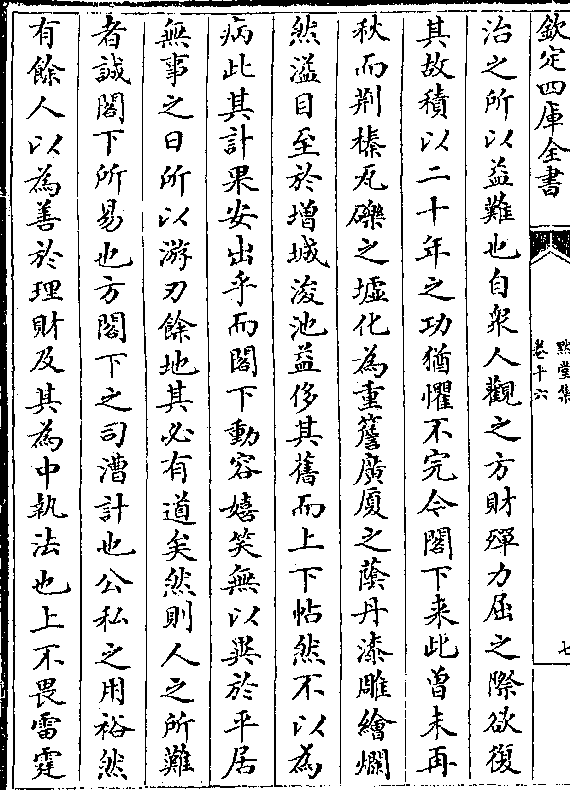 欽定四庫全書
默堂集
卷十六
七
治之所以益難也自衆人觀之方財殫力屈之際欲復
其故積以二十年之功猶懼不完今閣下来此曾未再
秋而荆榛瓦礫之墟化為重簷廣厦之蔭丹漆雕繪爛
然溢目至於增城浚池益侈其舊而上下帖然不以為
病此其計果安出乎而閣下動容嬉笑無以異於平居
無事之日所以游刃餘地其必有道矣然則人之所難
者誠閣下所易也方閣下之司漕計也公私之用裕然
有餘人以為善於理財及其為中執法也上不畏雷霆